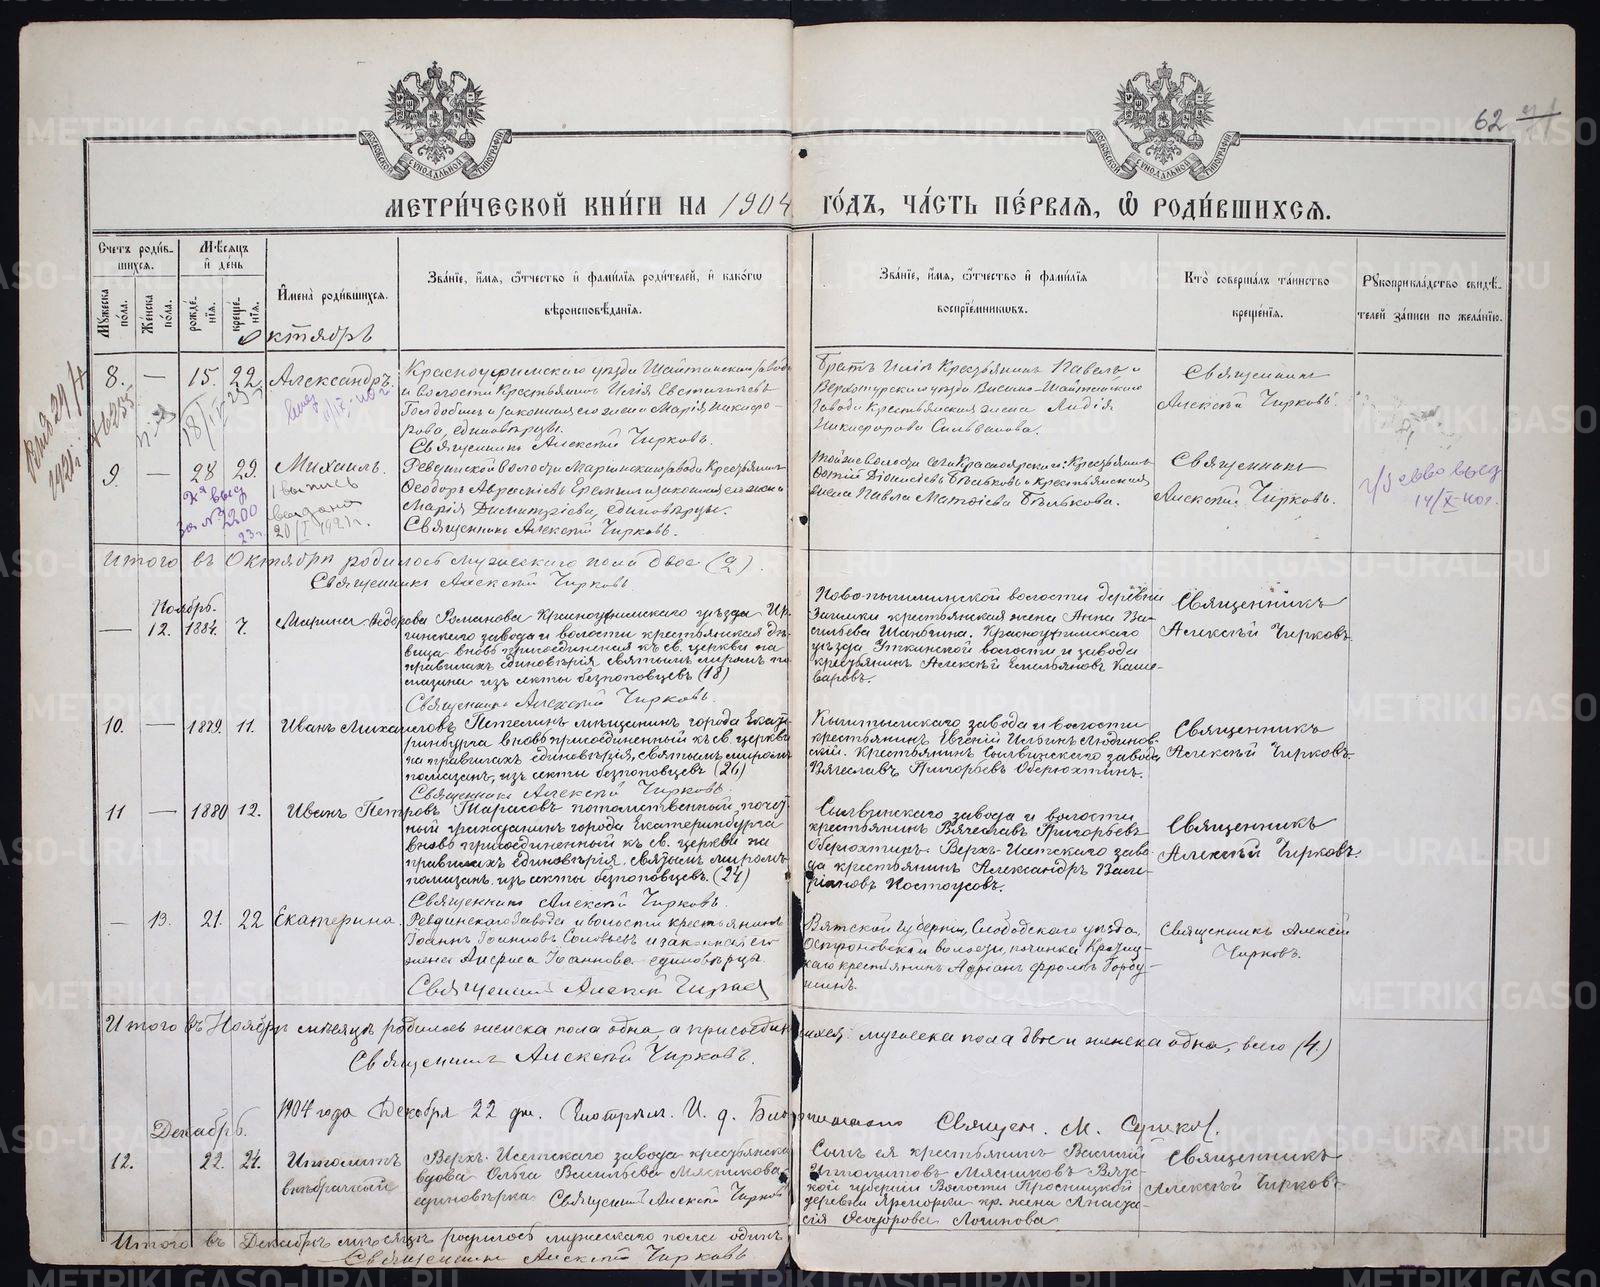 62
МЕТРИ́ЧЕСКОЙ КНИ́ГИ НА 1904 ГО́ДЪ, ЧА́СТЬ ПЕ́РВАЯ, Ѡ РОДИ́ВШИХСЯ.
Счетъ роди́вшихся.
Мꙋжеска по́ла.
Же́нска по́ла.
Мѣ́сяцъ и де́нь
рожде́нїя.
креще́нїя.
Имена̀ роди́вшихся.
Зва́нїе, и́мя, ѻ҆́тчество и҆ фами́лїя роди́телей, и҆ како́гѡ вѣроисповѣ́данїя.
Зва́нїе, и́мя, ѻ҆́тчество и҆ фами́лїя воспрїе́мниковъ.
Кто̀ соверша́лъ та́инство креще́нїя.
Рꙋкоприкла́дство свидѣ́телей за́писи по жела́нїю.
Октябрь
8. — 15. 22. Александръ.
Красноуфимскаго уѣзда Шайтанскаго завода
и волости Крестьянинъ Илія Евстигнѣевъ
и законная его жена Марія Никифо-
рова, единовѣрцы.
Священникъ Алексій Чирковъ.
Братъ Иліи Крестьянинъ Павелъ и
Верхотурскаго уѣзда Висимо-Шайтанскаго
завода Крестьянская жена Лидія
Никифорова
Священникъ
Алексій Чирковъ.
9. — 28 29. Михаилъ.
Ревдинской волости Маріинскаго завода Крестьянинъ
Ѳеодоръ и законная его жена
Марія Димитріева, единовѣрцы.
Священникъ Алексій Чирковъ.
Той же волости села Красноярскаго Крестьянинъ
и Крестьянская
жена Павла Матѳіева
Священникъ
Алексій Чирковъ.
№ 2200
1 выпись
14/X
Итого въ Октябрѣ родилось мужескаго пола двое (2).
Священникъ Алексій Чирковъ
Ноябрь.
— 12. 1884. 7. Марина Ѳедорова Романова Красноуфимскаго уѣзда Ир-
гинскаго завода и волости крестьянская дѣ-
вица вновь присоединенная къ св. церкви на
правилахъ единовѣрія святымъ миромъ по-
мазана изъ секты безпоповцевъ (18)
Священникъ Алексій Чирковъ
Ново-пышминской волости деревни
крестьянская жена Анна Ва-
сильева Шабѣина. Красноуфимскаго
уѣзда Уткинской волости и завода
крестьянинъ Алексій Емельяновъ Каше-
варовъ.
Священникъ
Алексій Чирковъ.
10. — 1879. 11. Иванъ Михаиловъ Пѣтелинъ мѣщанинъ города Екате-
ринбурга вновь присоединенный къ св. церкви
на правилахъ единовѣрія, святымъ миромъ
помазанъ, изъ секты безпоповцевъ (26)
Священникъ Алексій Чирковъ.
Кыштымскаго завода и волости
крестьянинъ Евгеній Ильинъ
Крестьянинъ Сылвинскаго завода
Вячеславъ Григорьевъ Оберюхтинъ.
Священникъ
Алексій Чирковъ.
11 — 1880 12. Иванъ Петровъ Тарасовъ потомственный почет-
ный гражданинъ города Екатеринбурга
вновь присоединенный къ св. церкви на
правилахъ единовѣрія. святымъ миромъ
помазанъ. изъ секты безпоповцевъ. (24)
Священникъ Алексій Чирковъ.
Сылвинскаго завода и волости
крестьянинъ Вячеславъ Григорьевъ
Оберюхтинъ. Верхъ-Исетскаго заво-
да крестьянинъ Александръ Вале-
ріановъ Костоусовъ.
Священникъ
Алексій Чирковъ.
— 13. 21. 22 Екатерина.
Ревдинскаго завода и волости крестьянинъ
Іоаннъ Іоанновъ Соловьевъ и законная его
жена Анфиса Іоаннова единовѣрцы
Священникъ Алексій Чирковъ
Вятской губерніи, Слободскаго уѣзда,
волости, починка
крестьянинъ Адріанъ Фроловъ Горбу-
нинъ.
Священникъ Алексій
Чирковъ.
Итого въ Ноябрѣ мѣсяцѣ родилось женска пола одна, а присоединившихся: мужеска пола двое и женска одна, всего (4.)
Священникъ Алексій Чирковъ.
1904 года Декабря 22 дня. Смотрѣлъ. И. д. Благочиннаго Священ. М.
Декабрь.
12. 22. 24. Ипполитъ
внѣбрачный
Верхъ-Исетскаго завода крестьянска
вдова Ольга Васильева Мясникова
единовѣрка Священникъ Алексій Чирковъ
Сынъ ея крестьянинъ Василій
Ипполитовъ Мясниковъ Вят-
кой губерніи Волости Просницкой
деревни Ярморки кр. жена Анаста-
сія Ѳеодорова Логинова
Священникъ
Алексій Чирковъ
Итого въ Декабрѣ мѣсяцѣ родилось мужескаго пола одинъ
Священникъ Алексій Чирковъ
METRIKI.GASO-URAL.RU